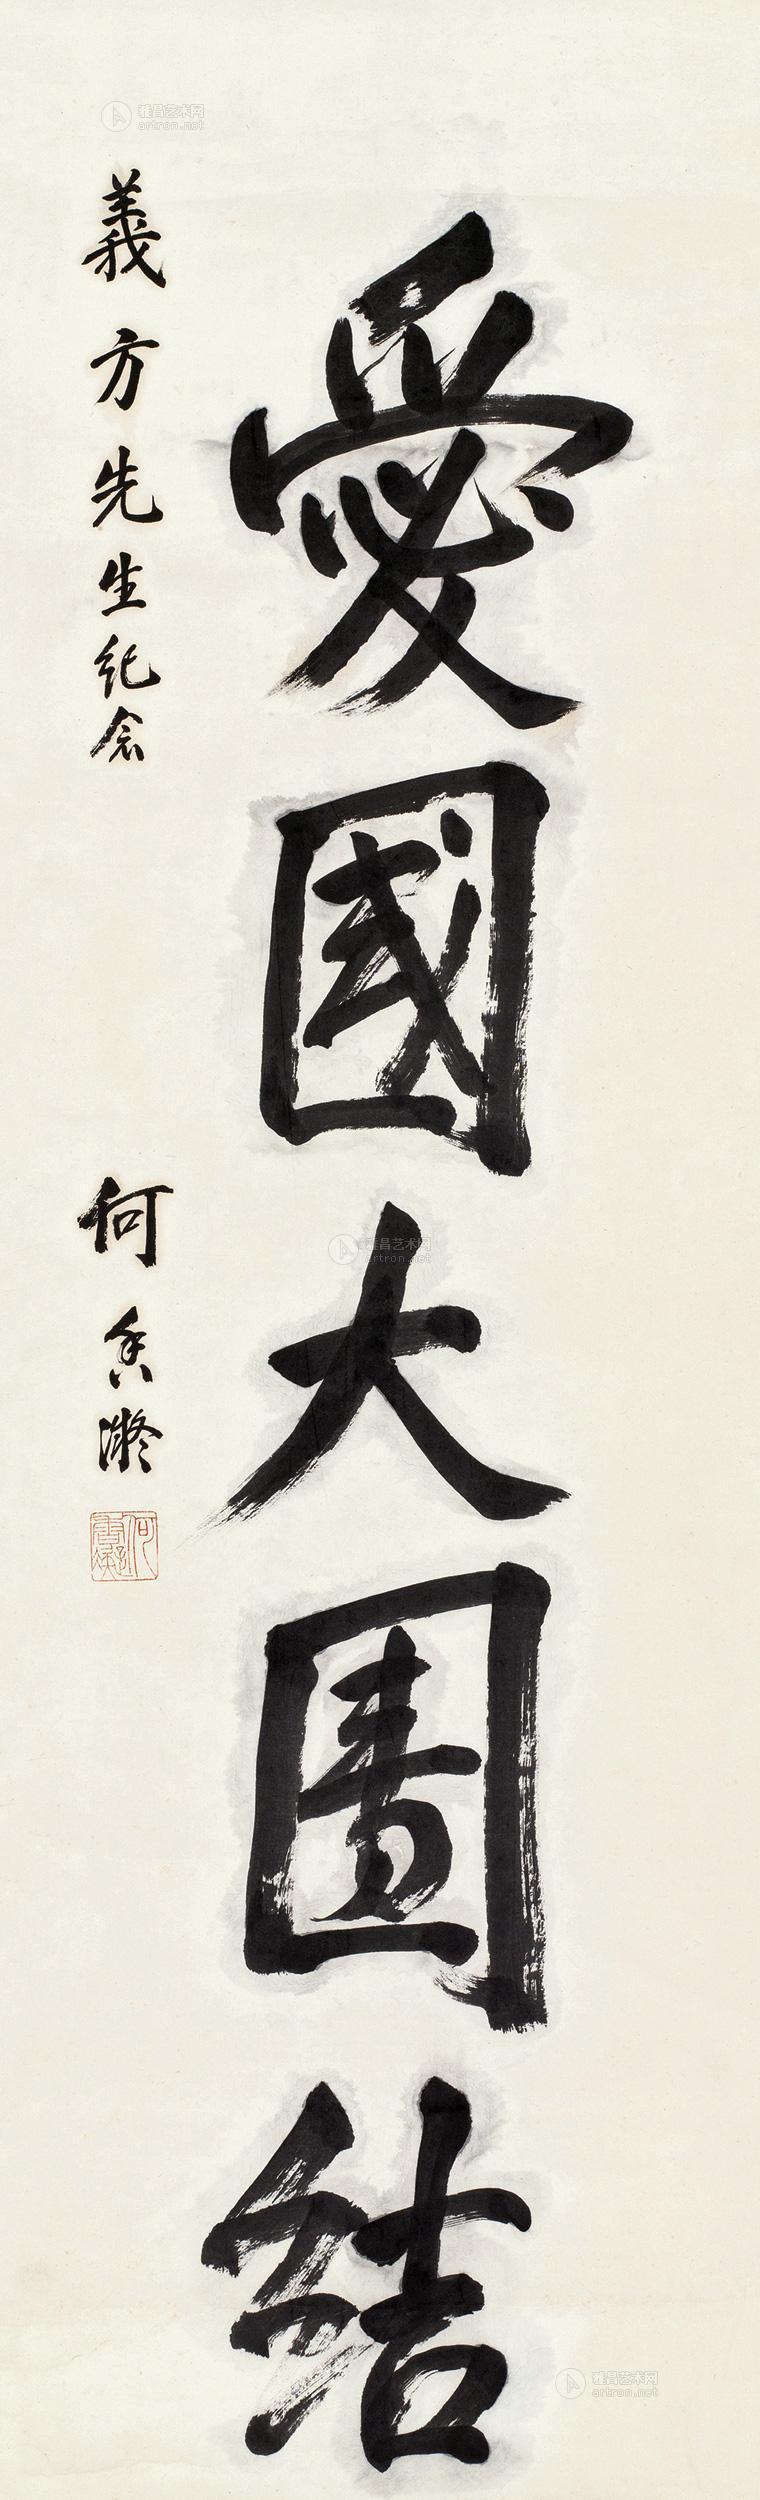 愛國大團結
義方先生紀念
何香凝
雅昌艺术网
artron.net
雅昌艺术网
artron.net
雅昌艺术网
artron.net